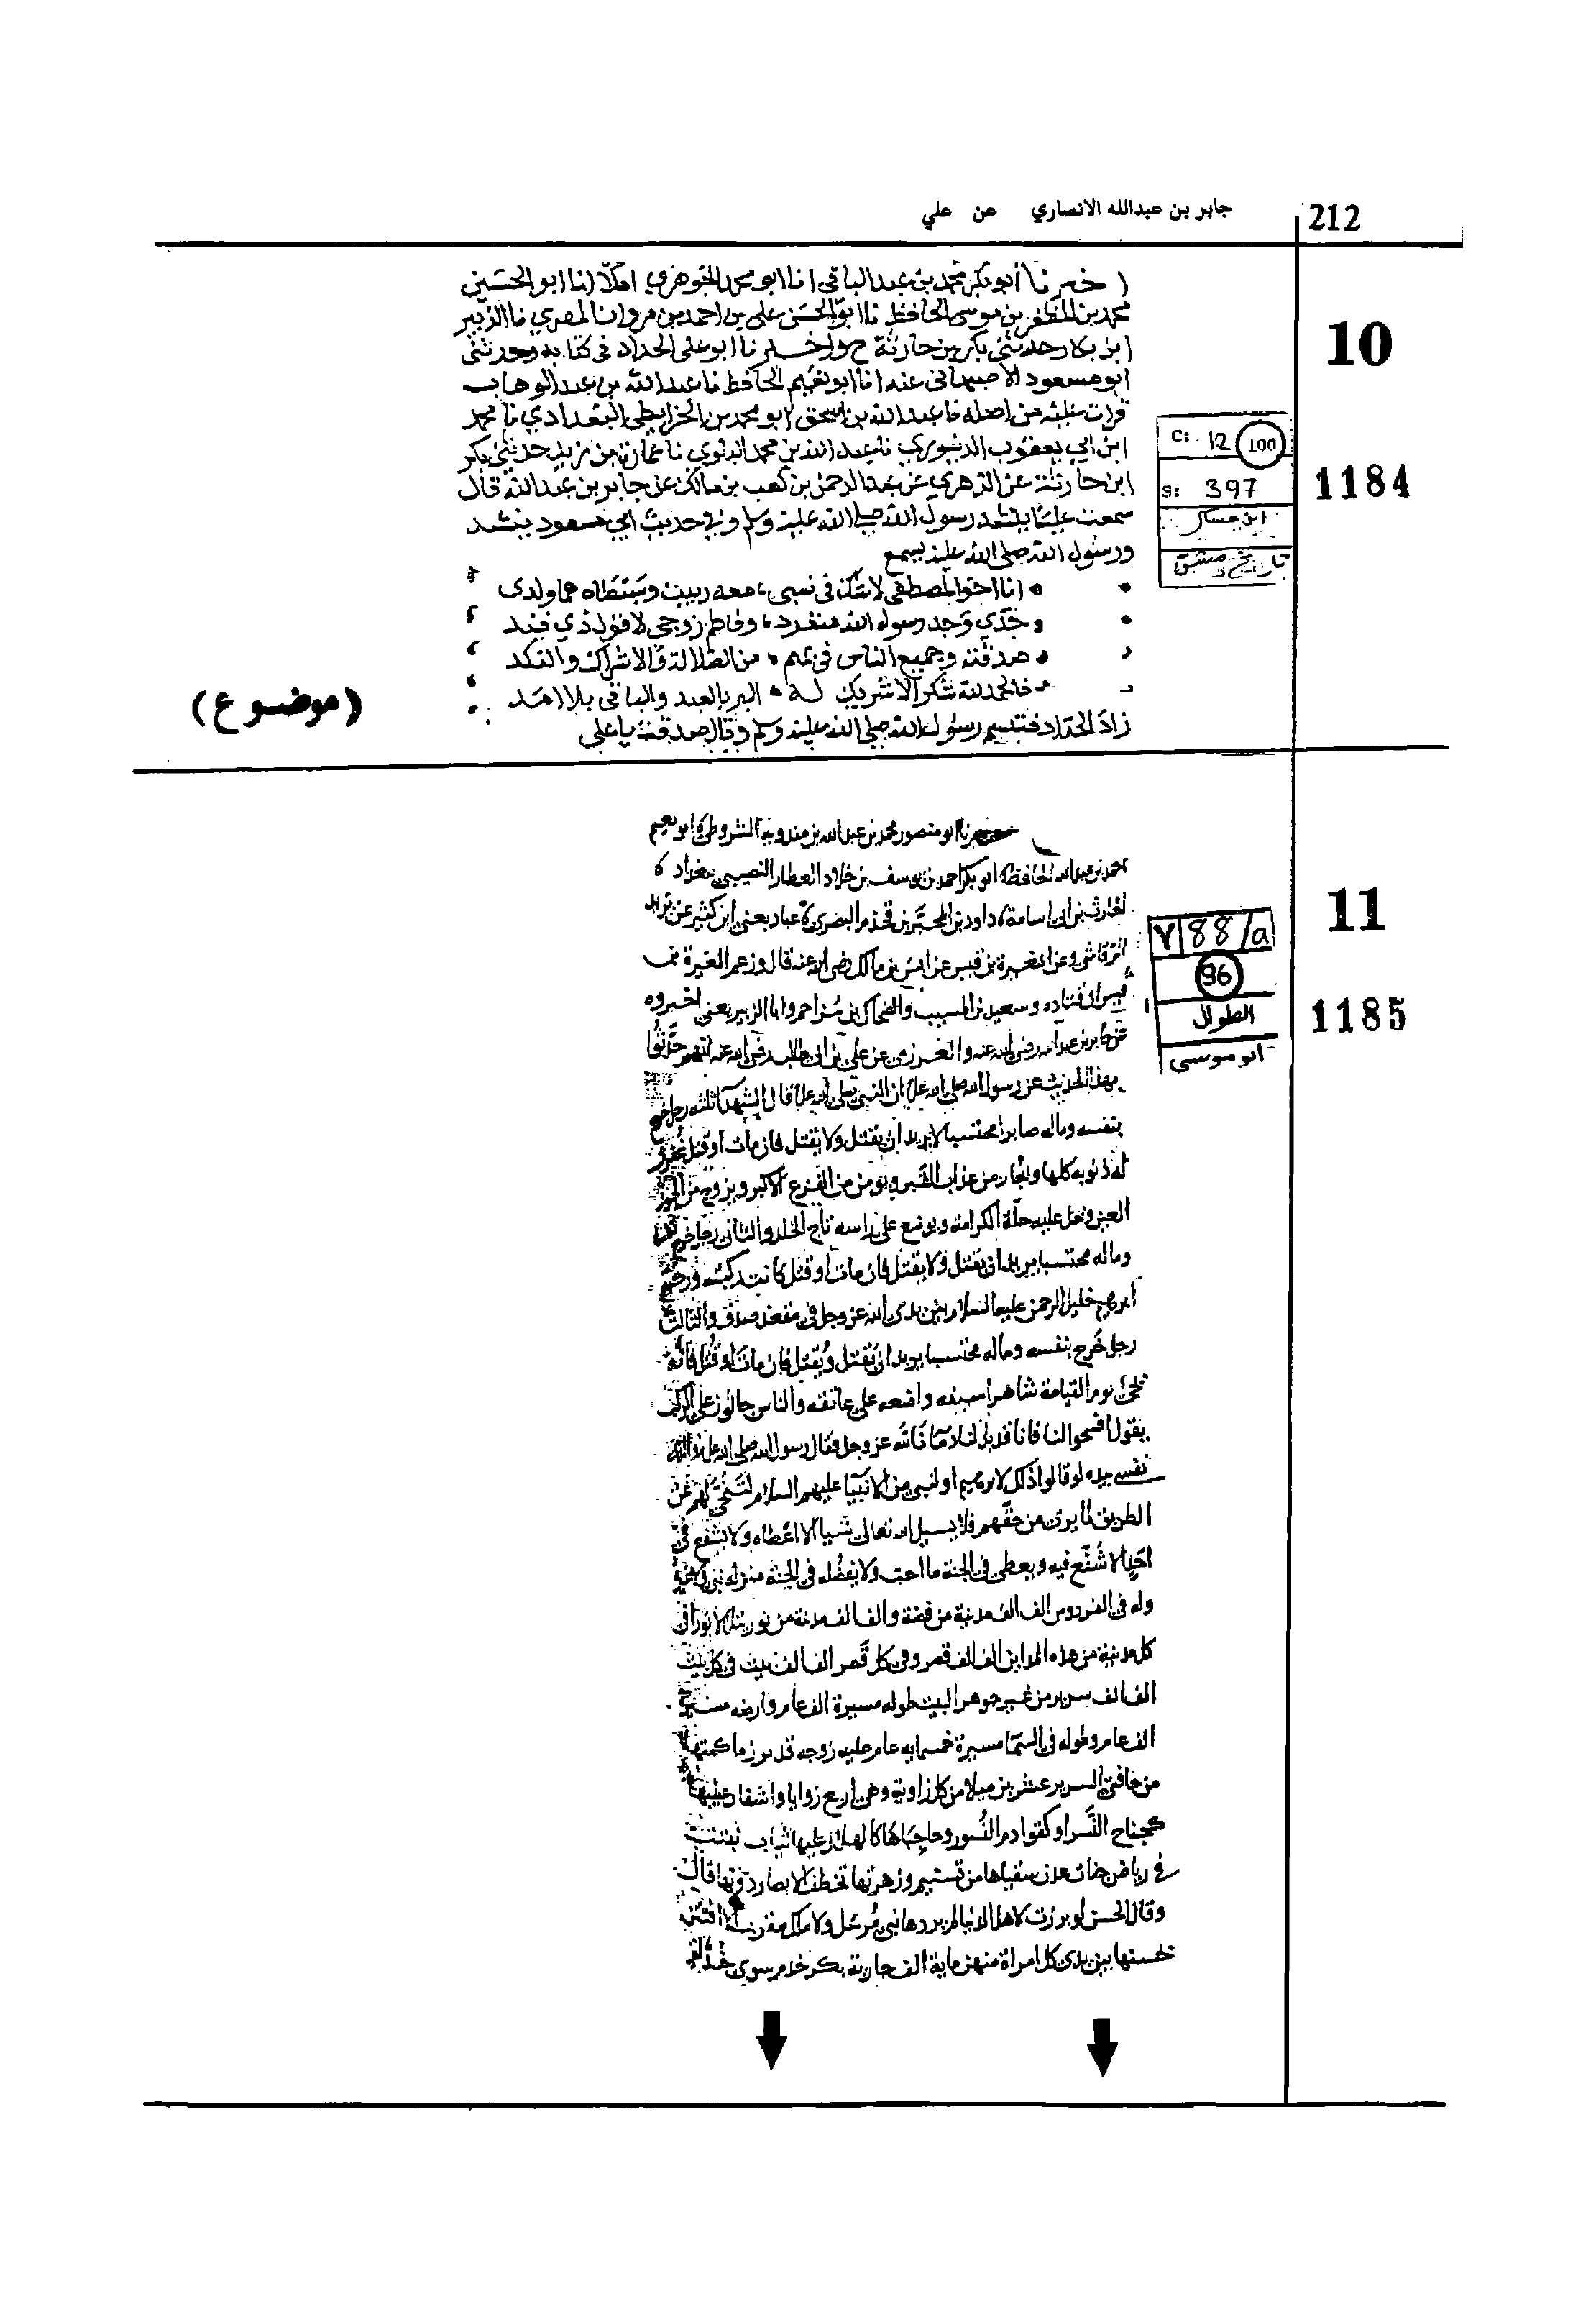 212
جابر بن عبدالله الانصاري عن علي
10
1184
C: 12 100
S: 397
ابن عساكر
تاريخ دمشق
اخبرنا أبو بكر محمد بن عبد الباقي انا ابو محمد الجوهري املآ انا ابو الحسين
محمد بن المظفر بن موسى الحافظ نا ابو الحسن علي بن احمد بن مروان المصري نا الزبير
ابن بكار حدثني بكر بن حارثة ح واخبرنا ابو علي الحداد في كتابه وحدثني
ابو مسعود الاصبهاني عنه انا ابو نعيم الحافظ نا عبد الله بن عبد الوهاب
قرات من اصله نا عبد الله بن اسحق ابو محمد بن الخرايطي البغدادي نا محمد
ابن ابي يعقوب الدينوري نا عبد الله بن محمد نا عمارة بن زيد حدثني بكر
ابن حارثة عن الزهري عن عبد الرحمن بن كعب بن مالك عن جابر بن عبد الله قال
سمعت عليا ينشد رسول الله صلى الله عليه وسلم وفي حديث ابي مسعود ينشد
ورسول الله صلى الله عليه يسمع
انا اخو المصطفى لا شك في نسبي معه ربيت وسبطاه هما ولدي
جدي وجد رسول الله منفرد وفاطم زوجتي لا قول ذي فند
صدقته وجميع الناس في بهم من الضلالة والاشراك والنكد
فالحمد لله شكرا لا شريك له البر بالعبد والباقي بلا امد
زاد الحداد فتبسم رسول الله صلى الله عليه وسلم وقال صدقت يا علي
(موضوع)
11
1185
٧/88/a
96
الطوال
ابو موسى
نا ابو منصور محمد بن عبد الله بن مندويه الشروطي ابو نعيم
احمد بن عبد الله الحافظ ابو بكر احمد بن يوسف بن خلاد العطار النصيبي ببغداد
الحارث بن ابي اسامة داود بن المحبر بن قحذم البصري عباد يعني ابن كثير عن يزيد
الرقاشي وعن المغيرة بن قيس عن انس بن مالك رضي الله عنه قال وزعم المغيرة بن
قيس ان قتاده وسعيد بن المسيب والضحاك بن مزاحم وابا الزبير يعني اخبروه
عن جابر بن عبد الله رضي الله عنه عن علي بن ابي طالب رضي الله عنه انهم حدثوا
بهذا الحديث عن رسول الله صلى الله عليه ان النبي صلى الله عليه قال الشهدآ ثلثه رجل خرج
بنفسه وماله صابرا محتسبا لا يريد ان يقتل ولا يقتل فان مات او قتل غفرت
له ذنوبه كلها ويجار من عذاب القبر ويومن من الفزع الاكبر ويزوج من الحور
العين وتحل عليه حلة الكرامة ويوضع على راسه تاج الخلد والثاني رجل خرج بنفسه
وماله محتسبا يريد ان يقتل ولا يقتل فان مات او قتل كانت ركبته وركبة
ابرهيم خليل الرحمن عليه السلام بين يدي الله عز وجل في مقعد صدق والثالث
رجل خرج بنفسه وماله محتسبا يريد ان يقتل ويقتل فان مات او قتل فانه
يجئ يوم القيامة شاهرا سيفه واضعه على عاتقه والناس جاثون على الركب
يقول افسحوا لنا فانا قد بذلنا دمآنا لله عز وجل فقال رسول الله صلى الله عليه والذي
نفسي بيده لو قالوا ذلك لابرهيم او لنبي من الانبيآ عليهم السلام لتنحى لهم عن
الطريق لما يرى من حقهم فلا يسيل الله تعالى شيا الا اعطاه ولا يشفع في
احد الا شفع فيه ويعطى في الجنة ما احب ولا يفضله في الجنة منزله نبي ولا غيره
وله في الفردوس الف الف مدينة من فضة والف الف مدينة من
كل مدينة من هذه المداين الف الف قصر وفي كل قصر الف الف بيت في كل بيت
الف الف سرير من غير جوهر البيت طوله مسيرة الف عام وعرضه مسيرة
الف عام وطوله في السما مسيرة خمسمايه عام عليه زوجة قد برز ما كمتها
من حافتي السرير عشرين ميلا من كل زاوية وهي اربع زوايا واشفار عينيها
كجناح النسر او كقوادم النسور وحاجباها كالهلال عليها ثياب نبتت
في رياض جنات عدن سقياها من تسنيم وزهرتها تخطف الابصار دونها قال
وقال الحسن لو برزت لاهل الدنيا لم يردها نبي مرسل ولا ملك مقرب الا افتتن
بحسنها بين يدي كل امراة منهن ماية الف جارية بكر خدم سوى خدام